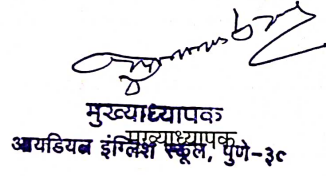 मुख्याध्यापक
मुख्याध्यापक
आयडियल इंग्लिश स्कूल, पुणे-३९